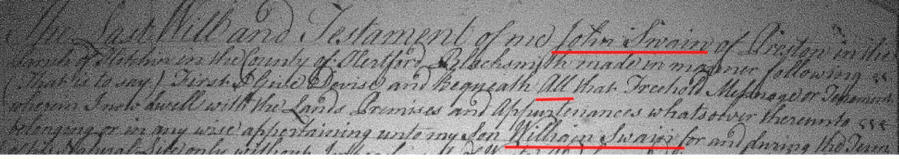 The Last Will and Testament of me John Swain of Preston in the
Parish of Hitchin in the County of Hertford Blacksmith made in manner following
(That is to say) First I Give Devise and Bequeath All that Freehold Messuage or Tenement
wherein I now dwell with the Lands Premises and Appurtenances whatsoever thereunto
belonging or in any wise appertaining unto my Son William Swain for and during the Term
Natural Life only without